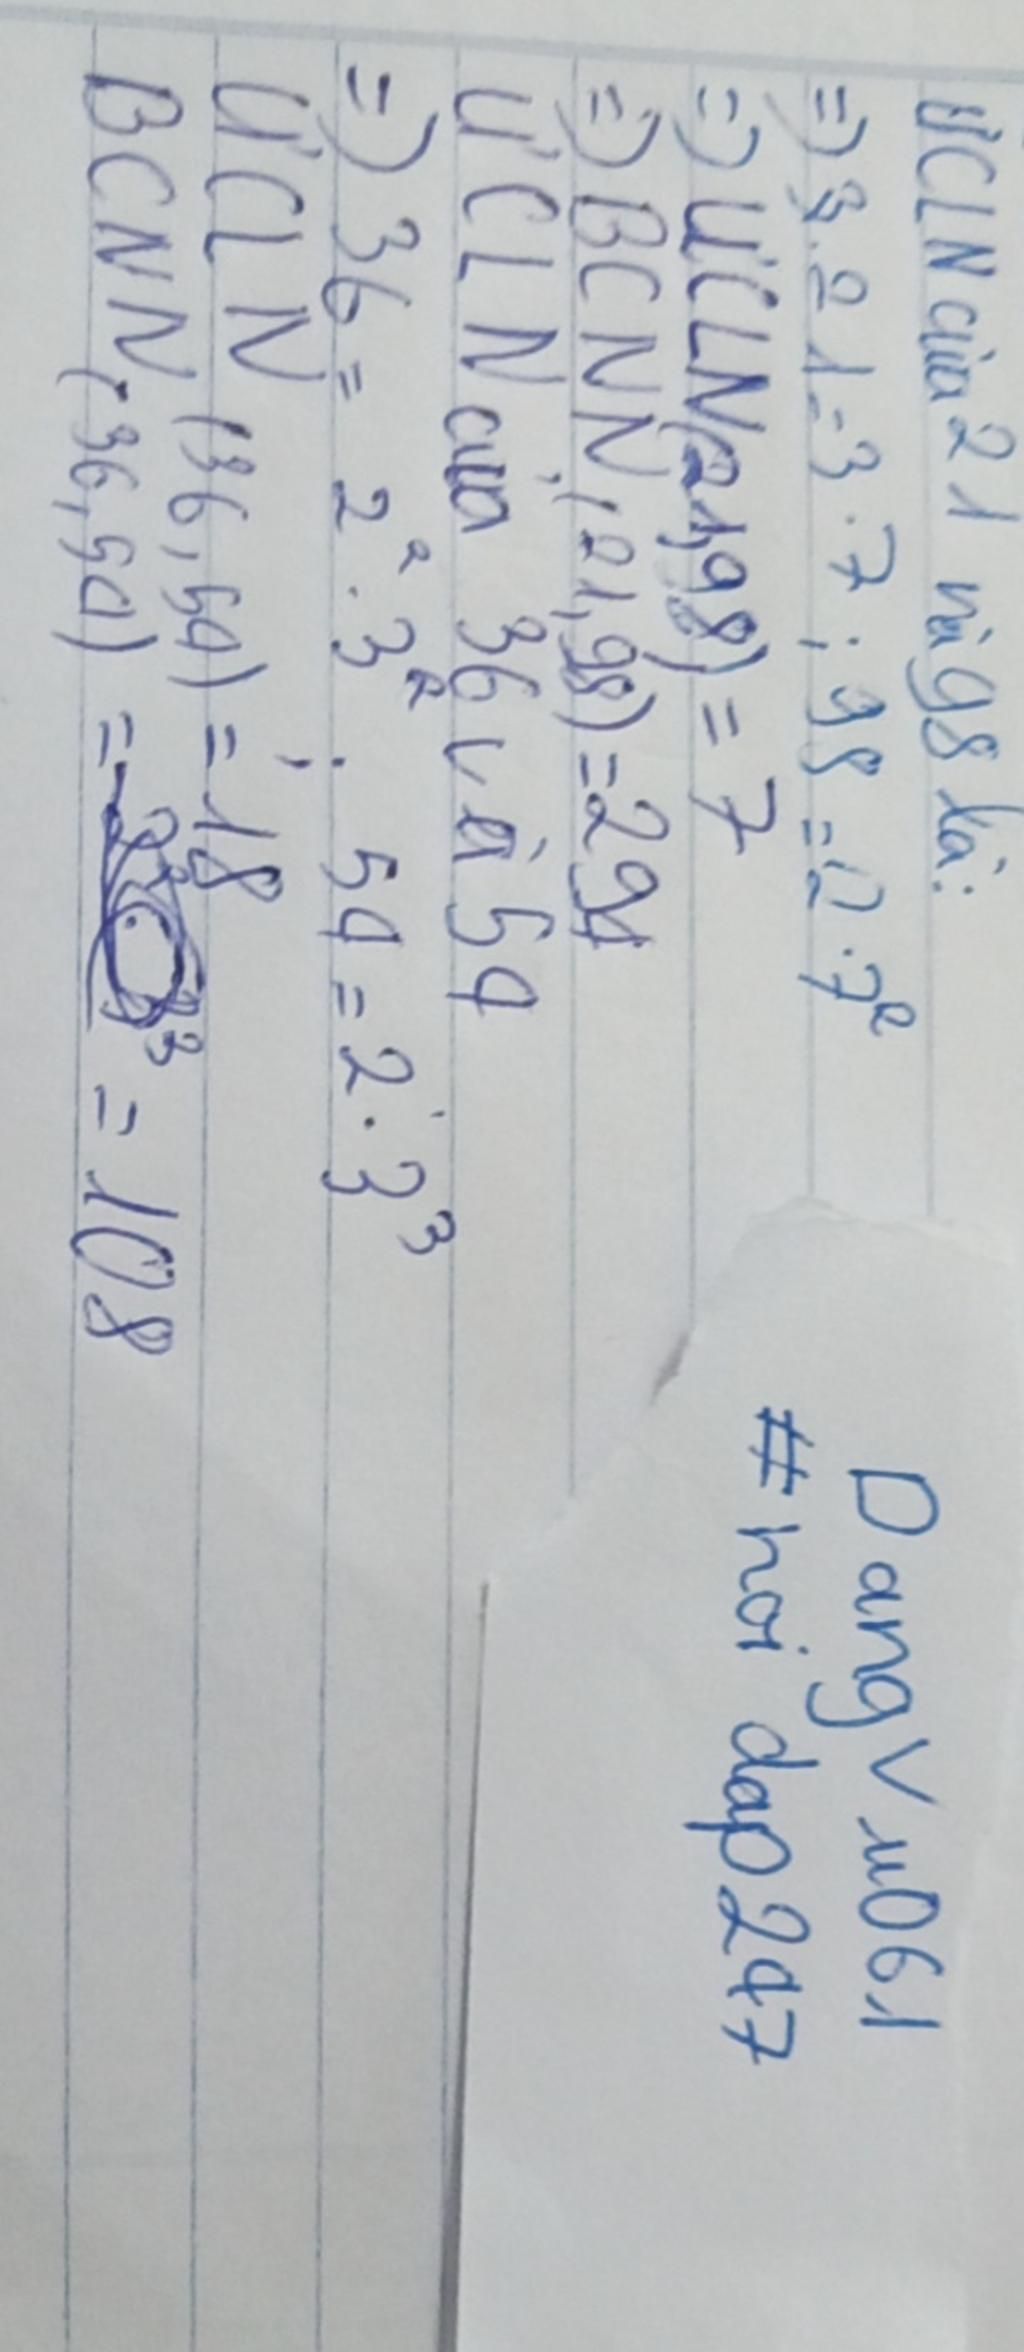 ƯCLN của 21 và 98 là:
=) 21 = 3 . 7 ; 98 = 2 . 7²
=) ƯCLN (21, 98) = 7
=) BCNN (21, 98) = 294
ƯCLN của 36 và 54
=) 36 = 2² . 3² ; 54 = 2 . 3³
ƯCLN (36, 54) = 18
BCNN (36, 54) = = 108
DangVu061
#hoi dap247